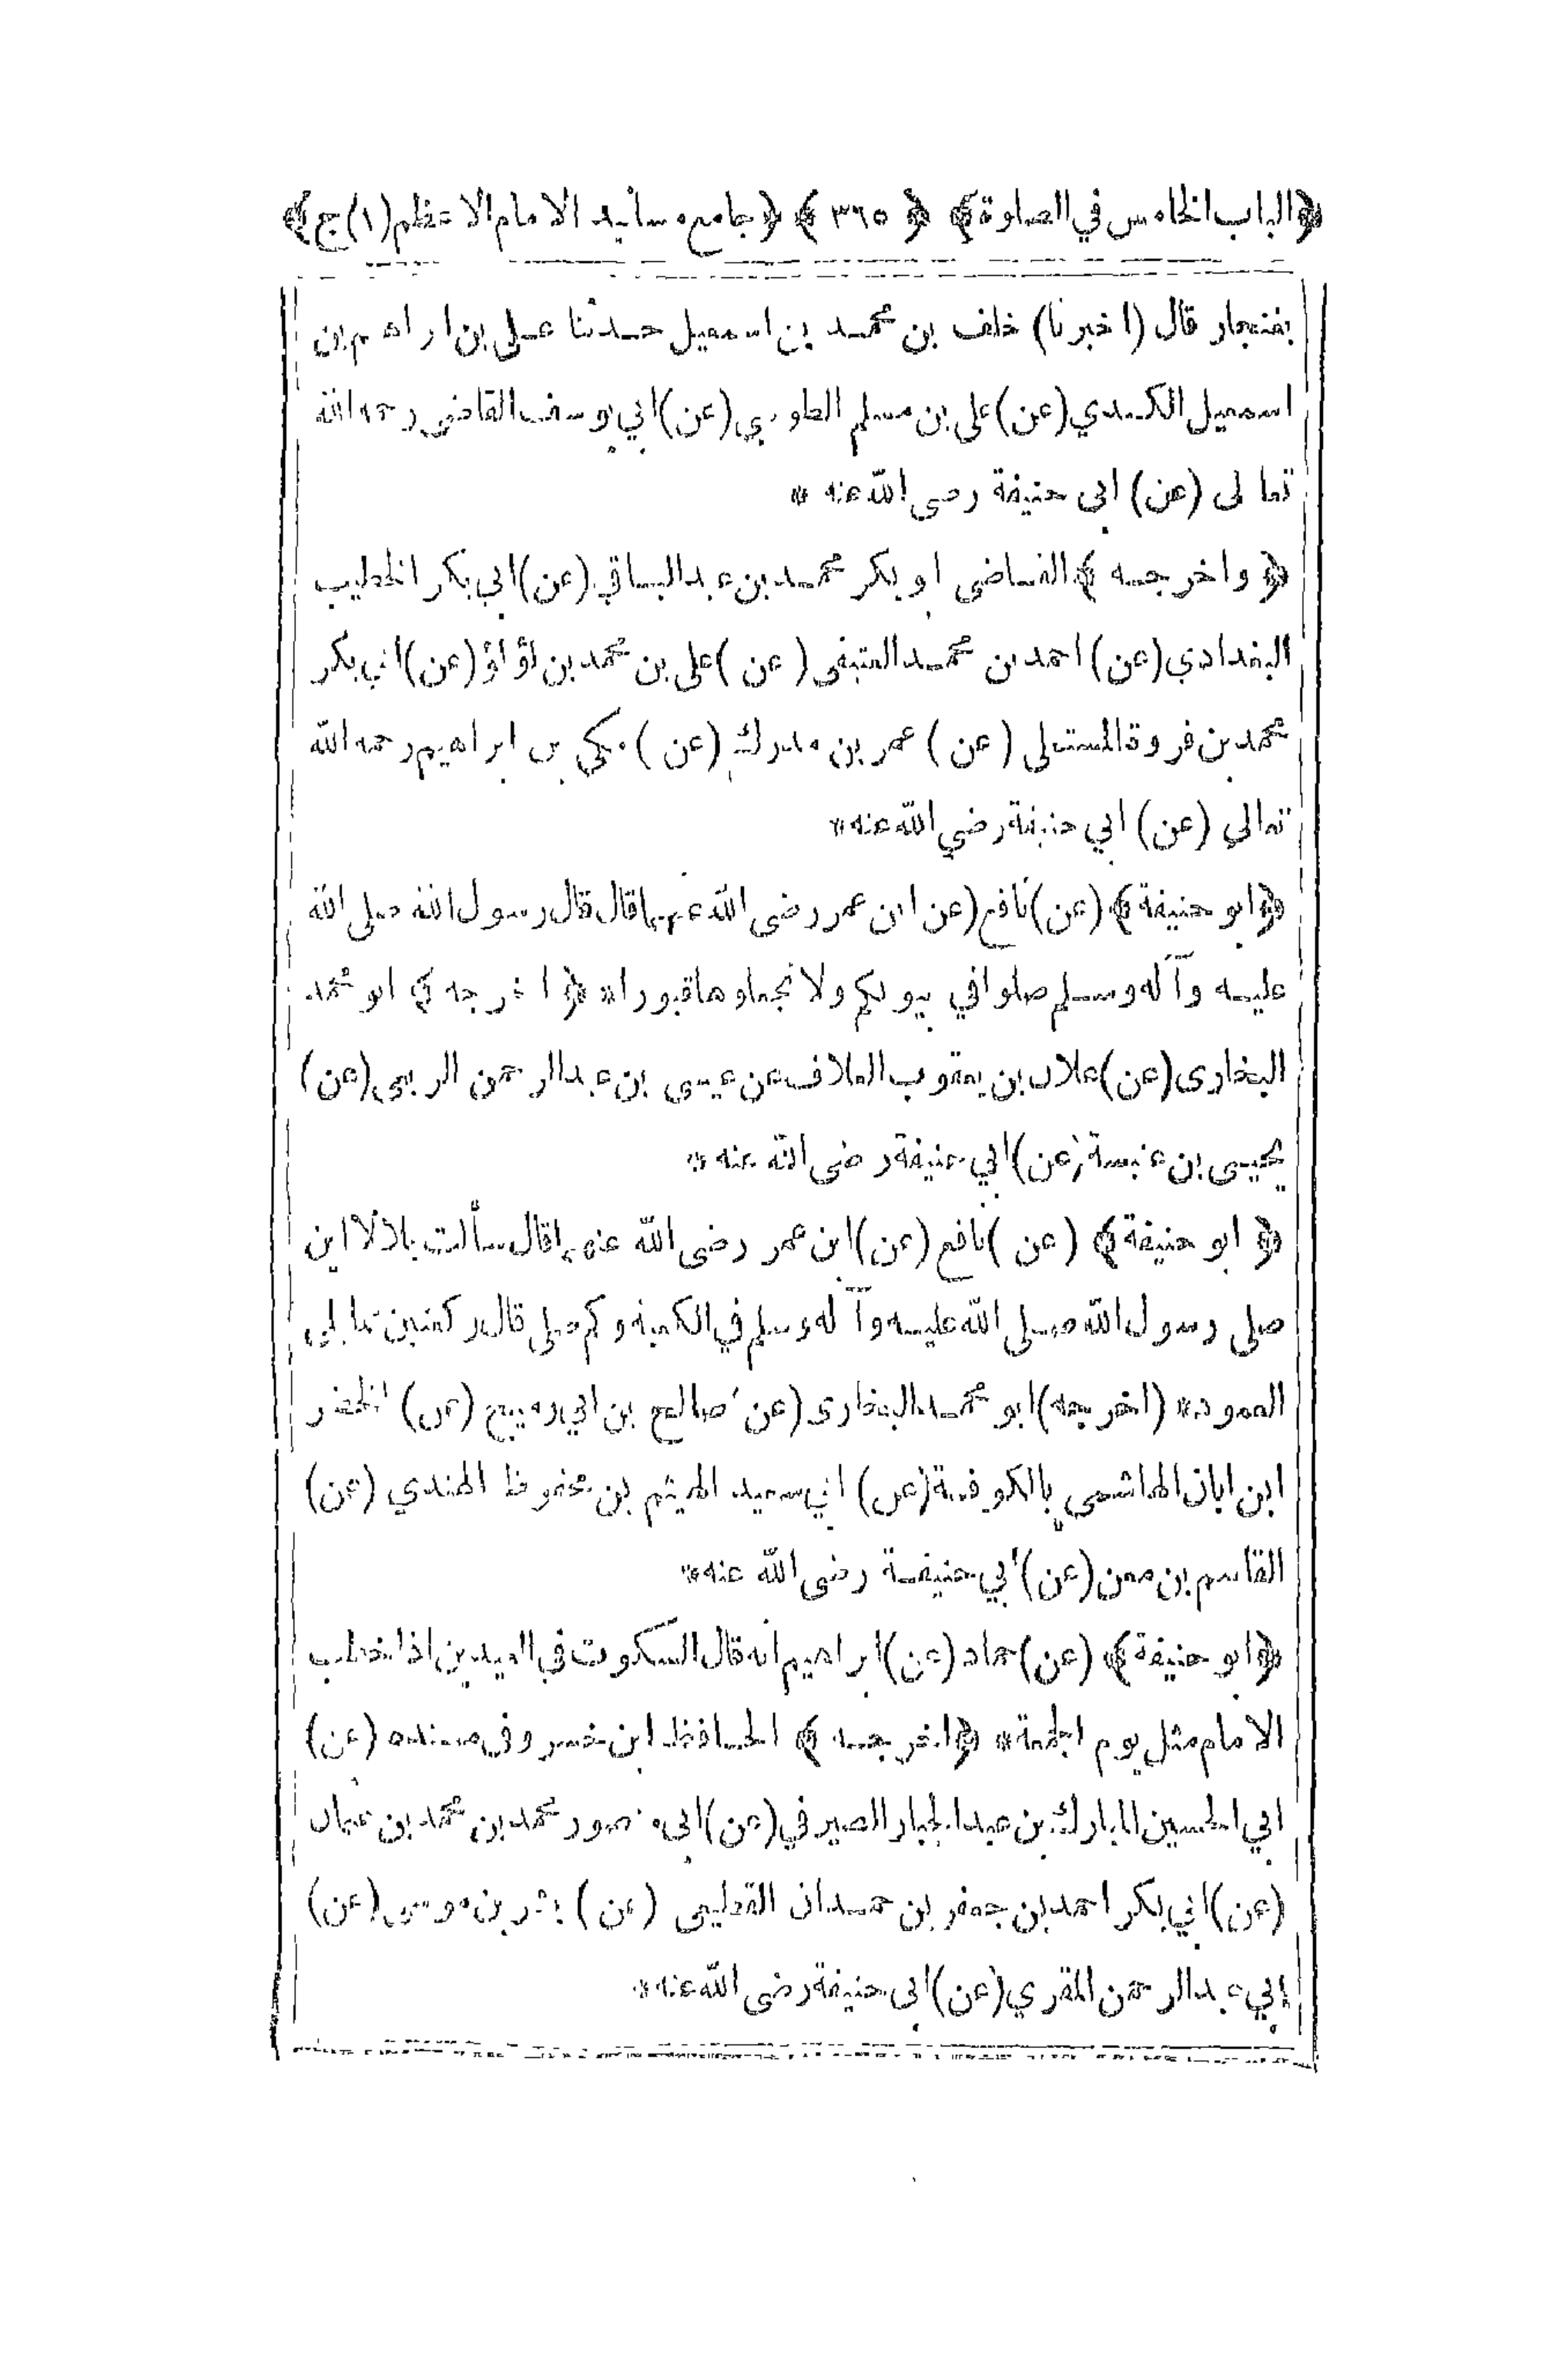 ﴿الباب الخامس في الصلوة﴾ ﴿٣٦٥﴾ ﴿جامع مسانيد الامام الاعظم (١) ج﴾
بغنجار قال (اخبرنا) خلف بن محمد بن اسمعيل حدثنا علي بن ابراهيم بن
اسمعيل الكندي (عن) علي بن مسلم الطوسي (عن) ابي يوسف القاضي رحمه الله
تعالى (عن) ابي حنيفة رضي الله عنه *
﴿واخرجه﴾ القاضي ابو بكر محمد بن عبد الباقي (عن) ابي بكر الخطيب
البغدادي (عن) احمد بن محمد العتيقي (عن) علي بن محمد بن لؤلؤ (عن) ابي بكر
محمد بن فروة المستملي (عن) عمر بن مدرك (عن) مكي بن ابراهيم رحمه الله
تعالى (عن) ابي حنيفة رضي الله عنه *
﴿ابو حنيفة﴾ (عن) نافع (عن ابن عمر رضى الله عنهما قال قال رسول الله صلى الله
عليه وآله وسلم صلوا في بيوتكم ولا تجعلوها قبورا * ﴿اخرجه﴾ ابو محمد
البخارى (عن) علان بن يعقوب العلاف عن عيسى بن عبد الرحمن (عن)
يحيى بن عنبسة (عن) ابي حنيفة رضى الله عنه *
﴿ابو حنيفة﴾ (عن) نافع (عن) ابن عمر رضى الله عنهما قال سألت بلالا اين
صلى رسول الله صلى الله عليه وآله وسلم في الكعبة وكم صلى قال ركعتين مما يلي
العمود * (اخرجه) ابو محمد البخارى (عن) صالح بن ابي رميح (عن) الخضر
ابن ابان الهاشمى بالكوفة (عن) ابي سعيد الهيثم بن محفوظ الهندي (عن)
القاسم بن معن (عن) ابي حنيفة رضى الله عنه *
﴿ابو حنيفة﴾ (عن) حماد (عن) ابراهيم انه قال السكوت في العيدين اذا خطب
الامام مثل يوم الجمعة * ﴿اخرجه﴾ الحافظ ابن خسرو في مسنده (عن)
ابي الحسين المبارك بن عبد الجبار الصيرفي (عن) ابي منصور محمد بن محمد بن عثمان
(عن) ابي بكر احمد بن جعفر بن حمدان القطيعى (عن) بشر بن موسى (عن)
ابي عبد الرحمن المقري (عن) ابى حنيفة رضى الله عنه *